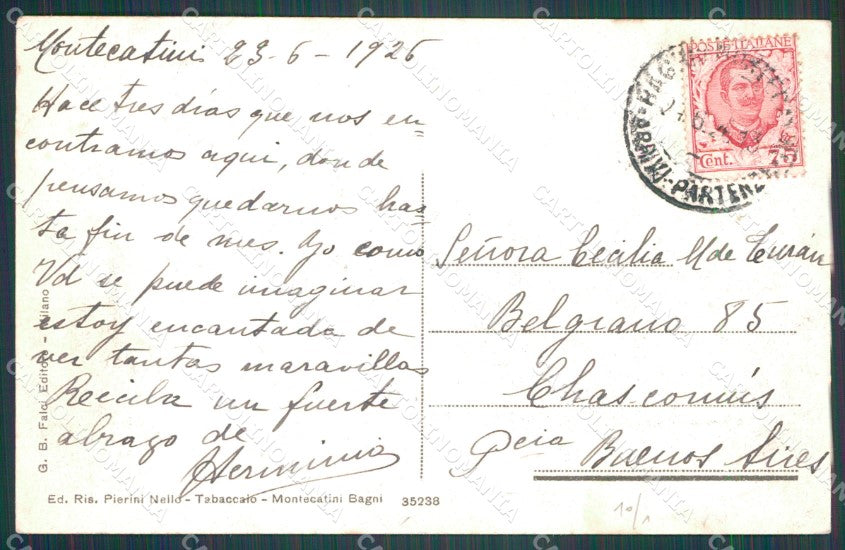 Montecatini 23-6-1926
Hace tres días que nos en-
contramos aqui, donde
pensamos quedarnos has-
ta fin de mes. Yo como
Vd se puede imaginar
estoy encantada de
ver tantas maravillas
Reciba un fuerte
abrazo de
Herminia
POSTE ITALIANE
Cent. 75
ARRIVI-PARTENZE
Señora Cecilia M de Turán
Belgrano 85
Chascomús
Pcia Buenos Aires
G. B. Falci Editore - Milano
Ed. Ris. Pierini Nello - Tabaccaio - Montecatini Bagni 35238
10/1
CARTOLINOMANIA